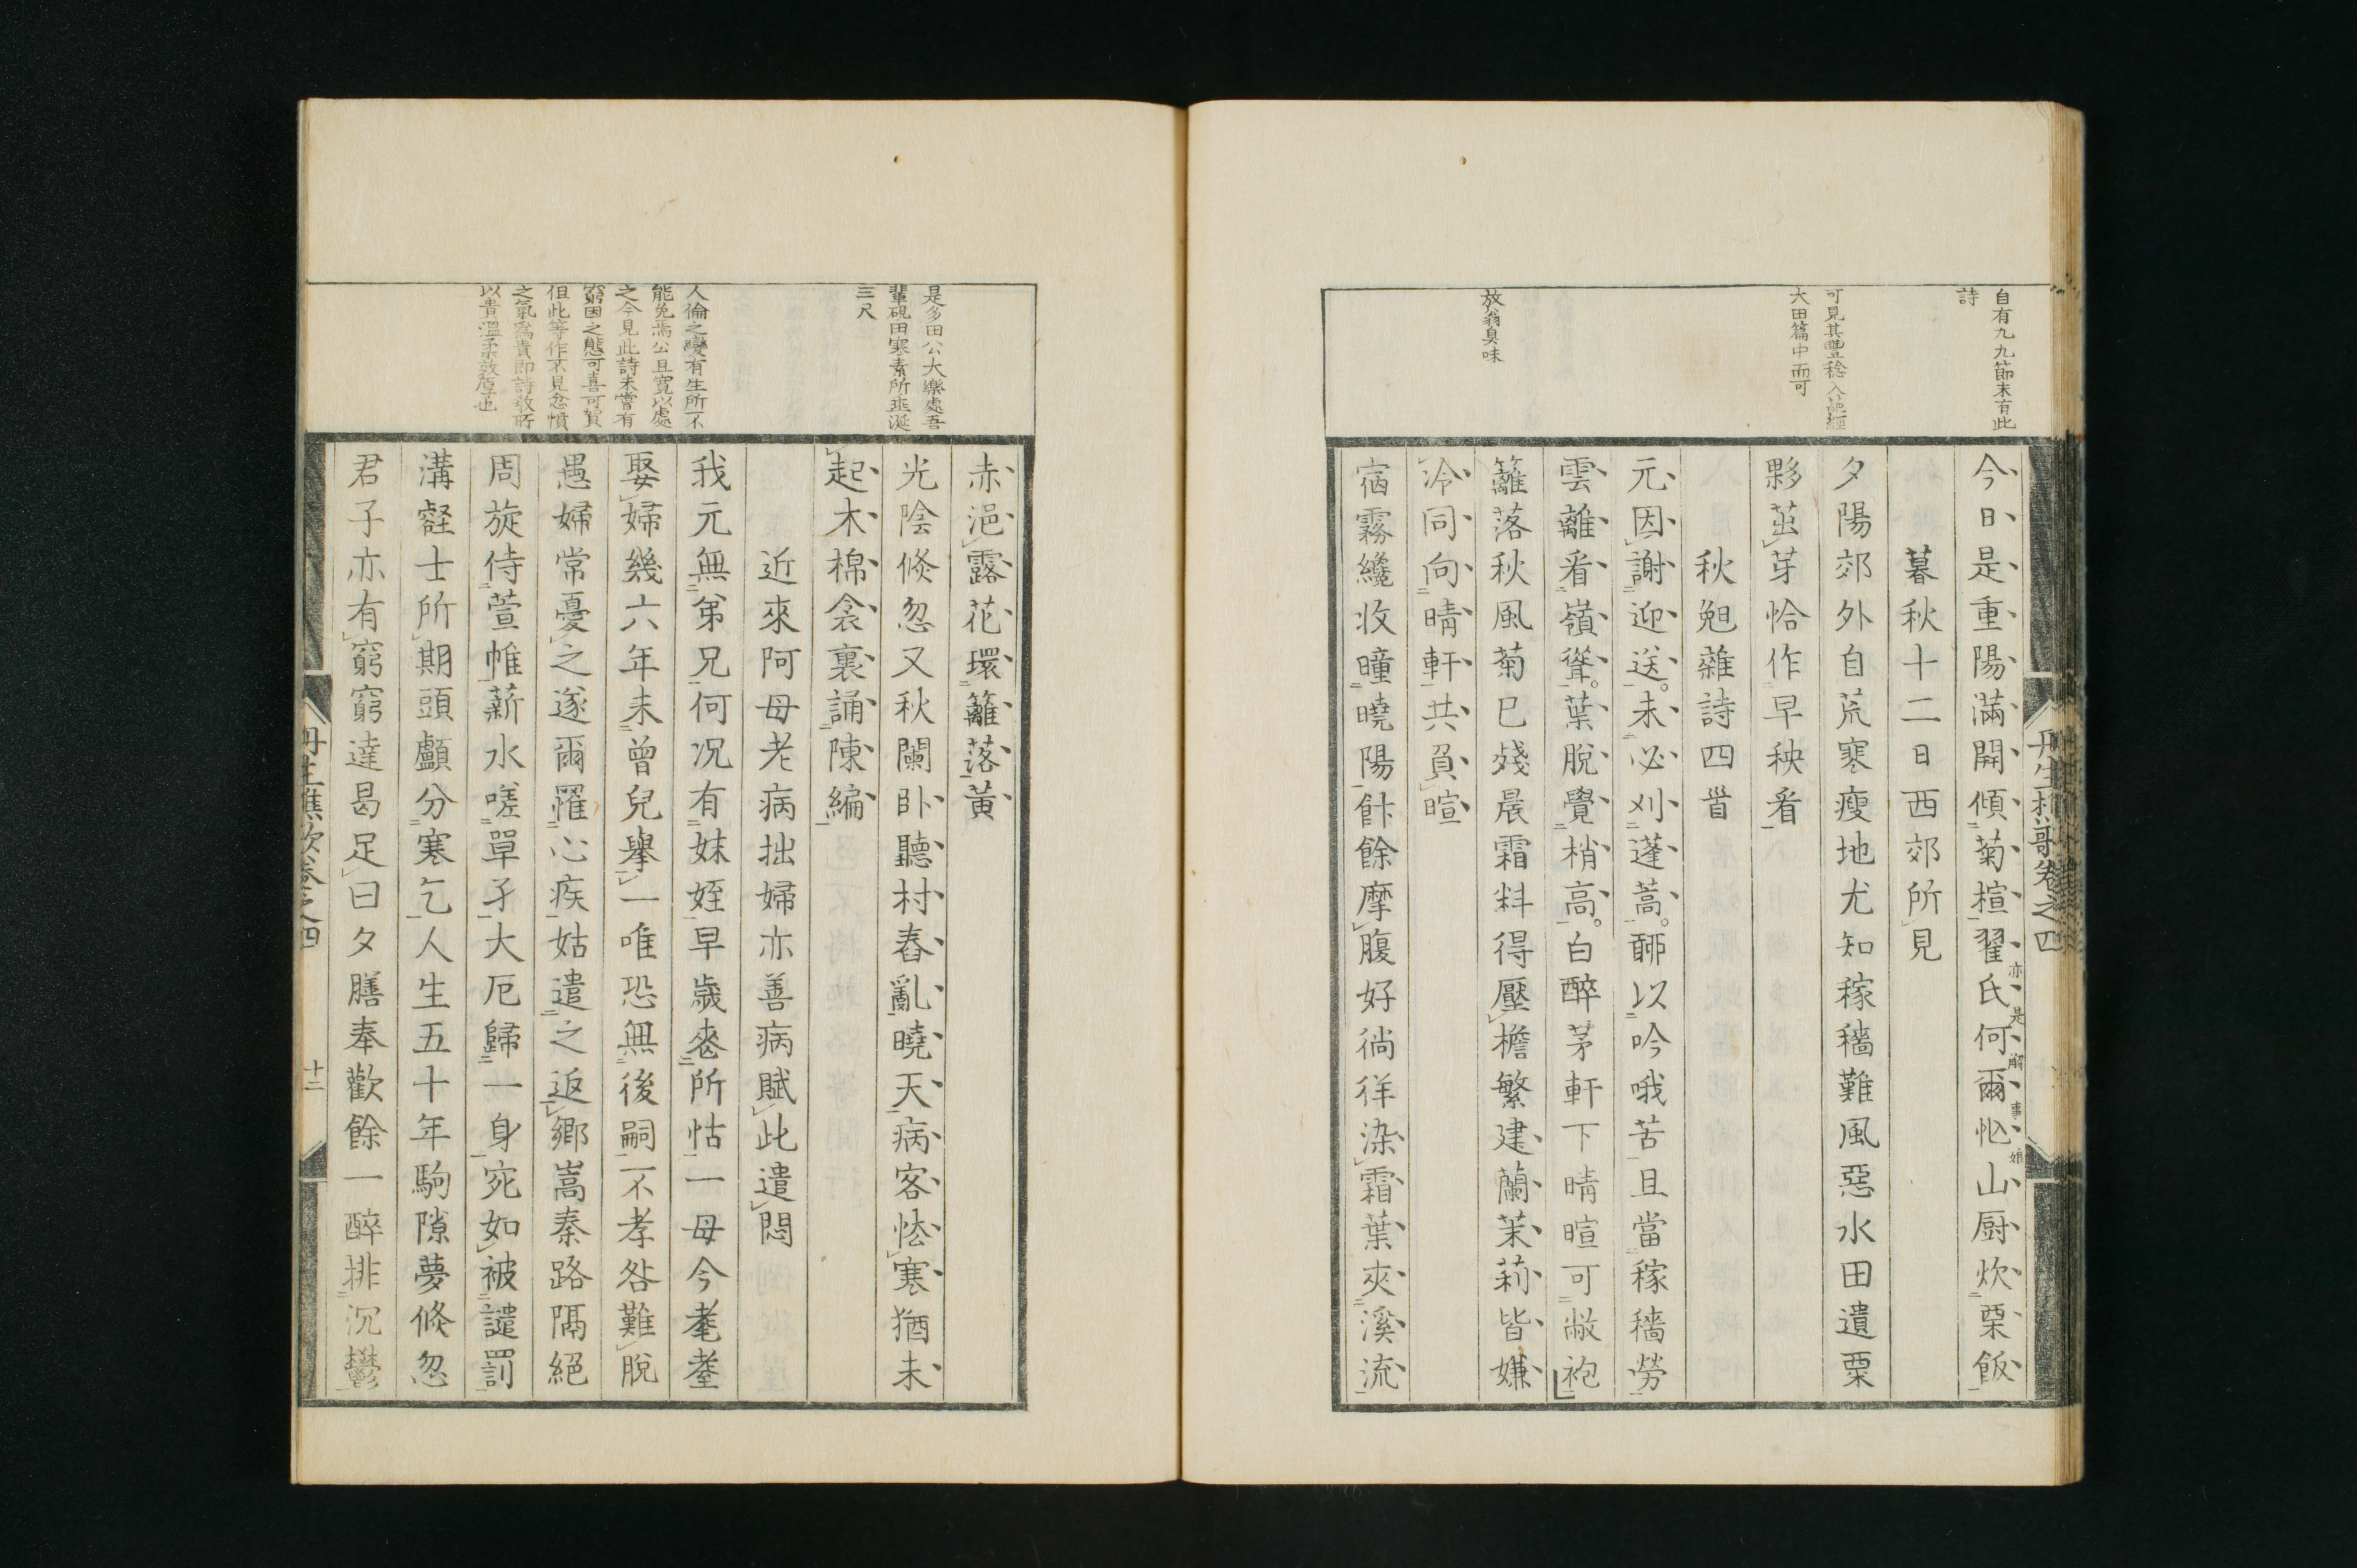 自有九九節未有此
詩
可見其豐稔入
大田篇中而可
放翁臭味
今日是重陽滿開傾菊楦翟氏何爾忙山厨炊栗飯
亦是解事娘
暮秋十二日西郊所見
夕陽郊外自荒寒瘦地尤知稼穡難風惡水田遺粟
夥茁芽恰作早秧看
秋炮雜詩四首
元因謝迎送未必刈蓬蒿聊以吟哦苦且當稼穡勞
雲離看嶺聳葉脫覺梢高白醉茅軒下晴暄可敝袍
籬落秋風菊已殘晨霜料得壓檐繁建蘭茉莉皆嫌
冷同向晴軒共負暄
宿霧纔收曈曉陽飰餘摩腹好徜徉染霜葉夾溪流
丹生樵歌卷之四
是多田公大樂處吾
輩硯田寒素所垂涎
三尺
人倫之變有生所不
能免嵩公且寬以處
之今見此詩未嘗有
窮困之態可喜可賀
但此等作不見忿憤
之氣爲貴即詩敎所
以貴溫柔敦厚也
赤浥露花環籬落黃
光陰倐忽又秋闌卧聽村舂亂曉天病客恡寒猶未
起木棉衾裏誦陳編
近來阿母老病拙婦亦善病賦此遣悶
我元無弟兄何况有妹姪早歲喪所怙一母今耄耋
娶婦幾六年未曾兒擧一唯恐無後嗣不孝咎難脫
愚婦常憂之遂爾罹心疾姑遣之返鄉嵩秦路隔絕
周旋侍萱帷薪水嗟單孑大厄歸一身宛如被譴罰
溝壑士所期頭顱分寒乞人生五十年駒隙夢倐忽
君子亦有窮窮達曷足曰夕膳奉歡餘一醉排沉鬱
丹生樵歌卷之四
十二